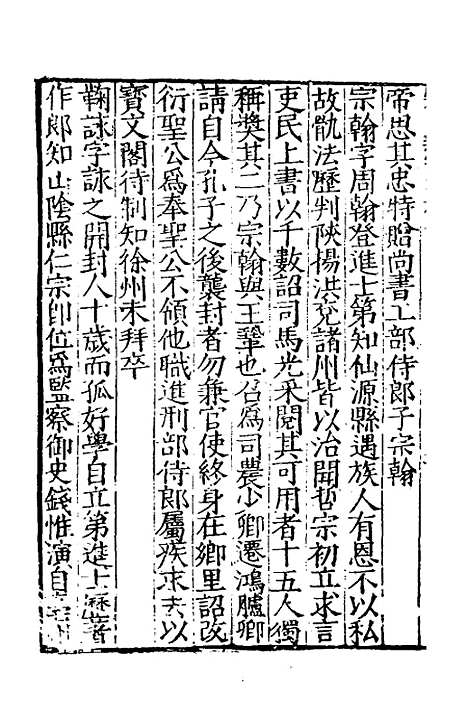 帝思其忠特贈尚書工部侍郎子宗翰
宗翰字周翰登進士第知仙源縣遇族人有恩不以私
故骫法歷判陝揚洪兗諸州皆以治聞哲宗初立求言
吏民上書以千數詔司馬光采閱其可用者十五人獨
稱奬其二乃宗翰與王鞏也召爲司農少卿遷鴻臚卿
請自今孔子之後襲封者勿兼官使終身在鄉里詔改
衍聖公爲奉聖公不領他職進刑部侍郎屬疾求去以
寳文閣待制知徐州未拜卒
鞠詠字詠之開封人十歲而孤好學自立第進士 著
作郎知山陰縣仁宗卽位爲監察御史錢惟演自